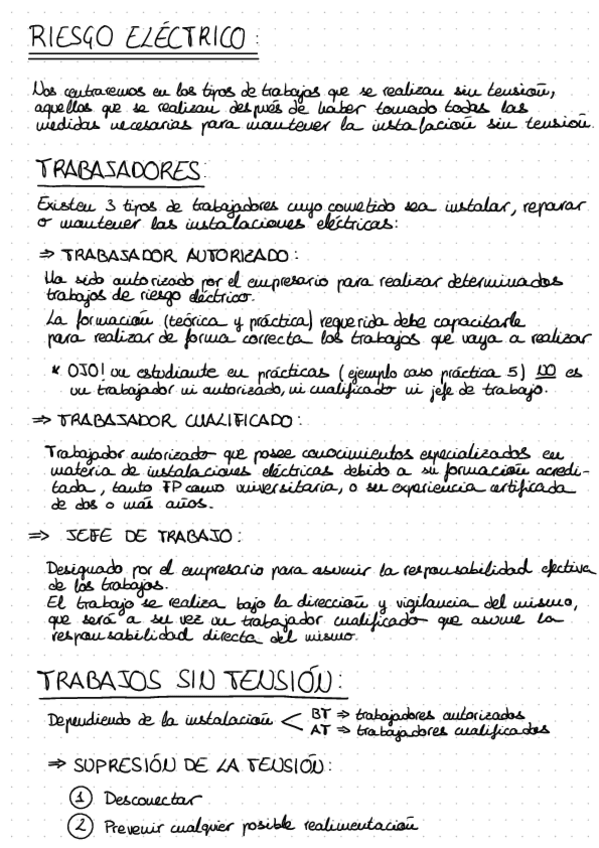 RIESGO ELÉCTRICO:
Nos centraremos en los tipos de trabajos que se realizan sin tensión,
aquellos que se realizan después de haber tomado todas las
medidas necesarias para mantener la instalación sin tensión.
TRABAJADORES:
Existen 3 tipos de trabajadores cuyo cometido sea instalar, reparar
o mantener las instalaciones eléctricas:
⇒ TRABAJADOR AUTORIZADO:
Ha sido autorizado por el empresario para realizar determinados
trabajos de riesgo eléctrico.
La formación (teórica y práctica) requerida debe capacitarle
para realizar de forma correcta los trabajos que vaya a realizar
* OJO! un estudiante en prácticas (ejemplo caso práctica 5) NO es
un trabajador ni autorizado, ni cualificado ni jefe de trabajo.
⇒ TRABAJADOR CUALIFICADO:
Trabajador autorizado que posee conocimientos especializados en
materia de instalaciones eléctricas debido a su formación acredi-
tada, tanto FP como universitaria, o su experiencia certificada
de dos o más años.
⇒ JEFE DE TRABAJO:
Designado por el empresario para asumir la responsabilidad efectiva
de los trabajos.
El trabajo se realiza bajo la dirección y vigilancia del mismo,
que será a su vez un trabajador cualificado que asume la
responsabilidad directa del mismo.
TRABAJOS SIN TENSIÓN:
Dependiendo de la instalación < BT ⇒ trabajadores autorizados
AT ⇒ trabajadores cualificados
⇒ SUPRESIÓN DE LA TENSIÓN:
① Desconectar
② Prevenir cualquier posible realimentación